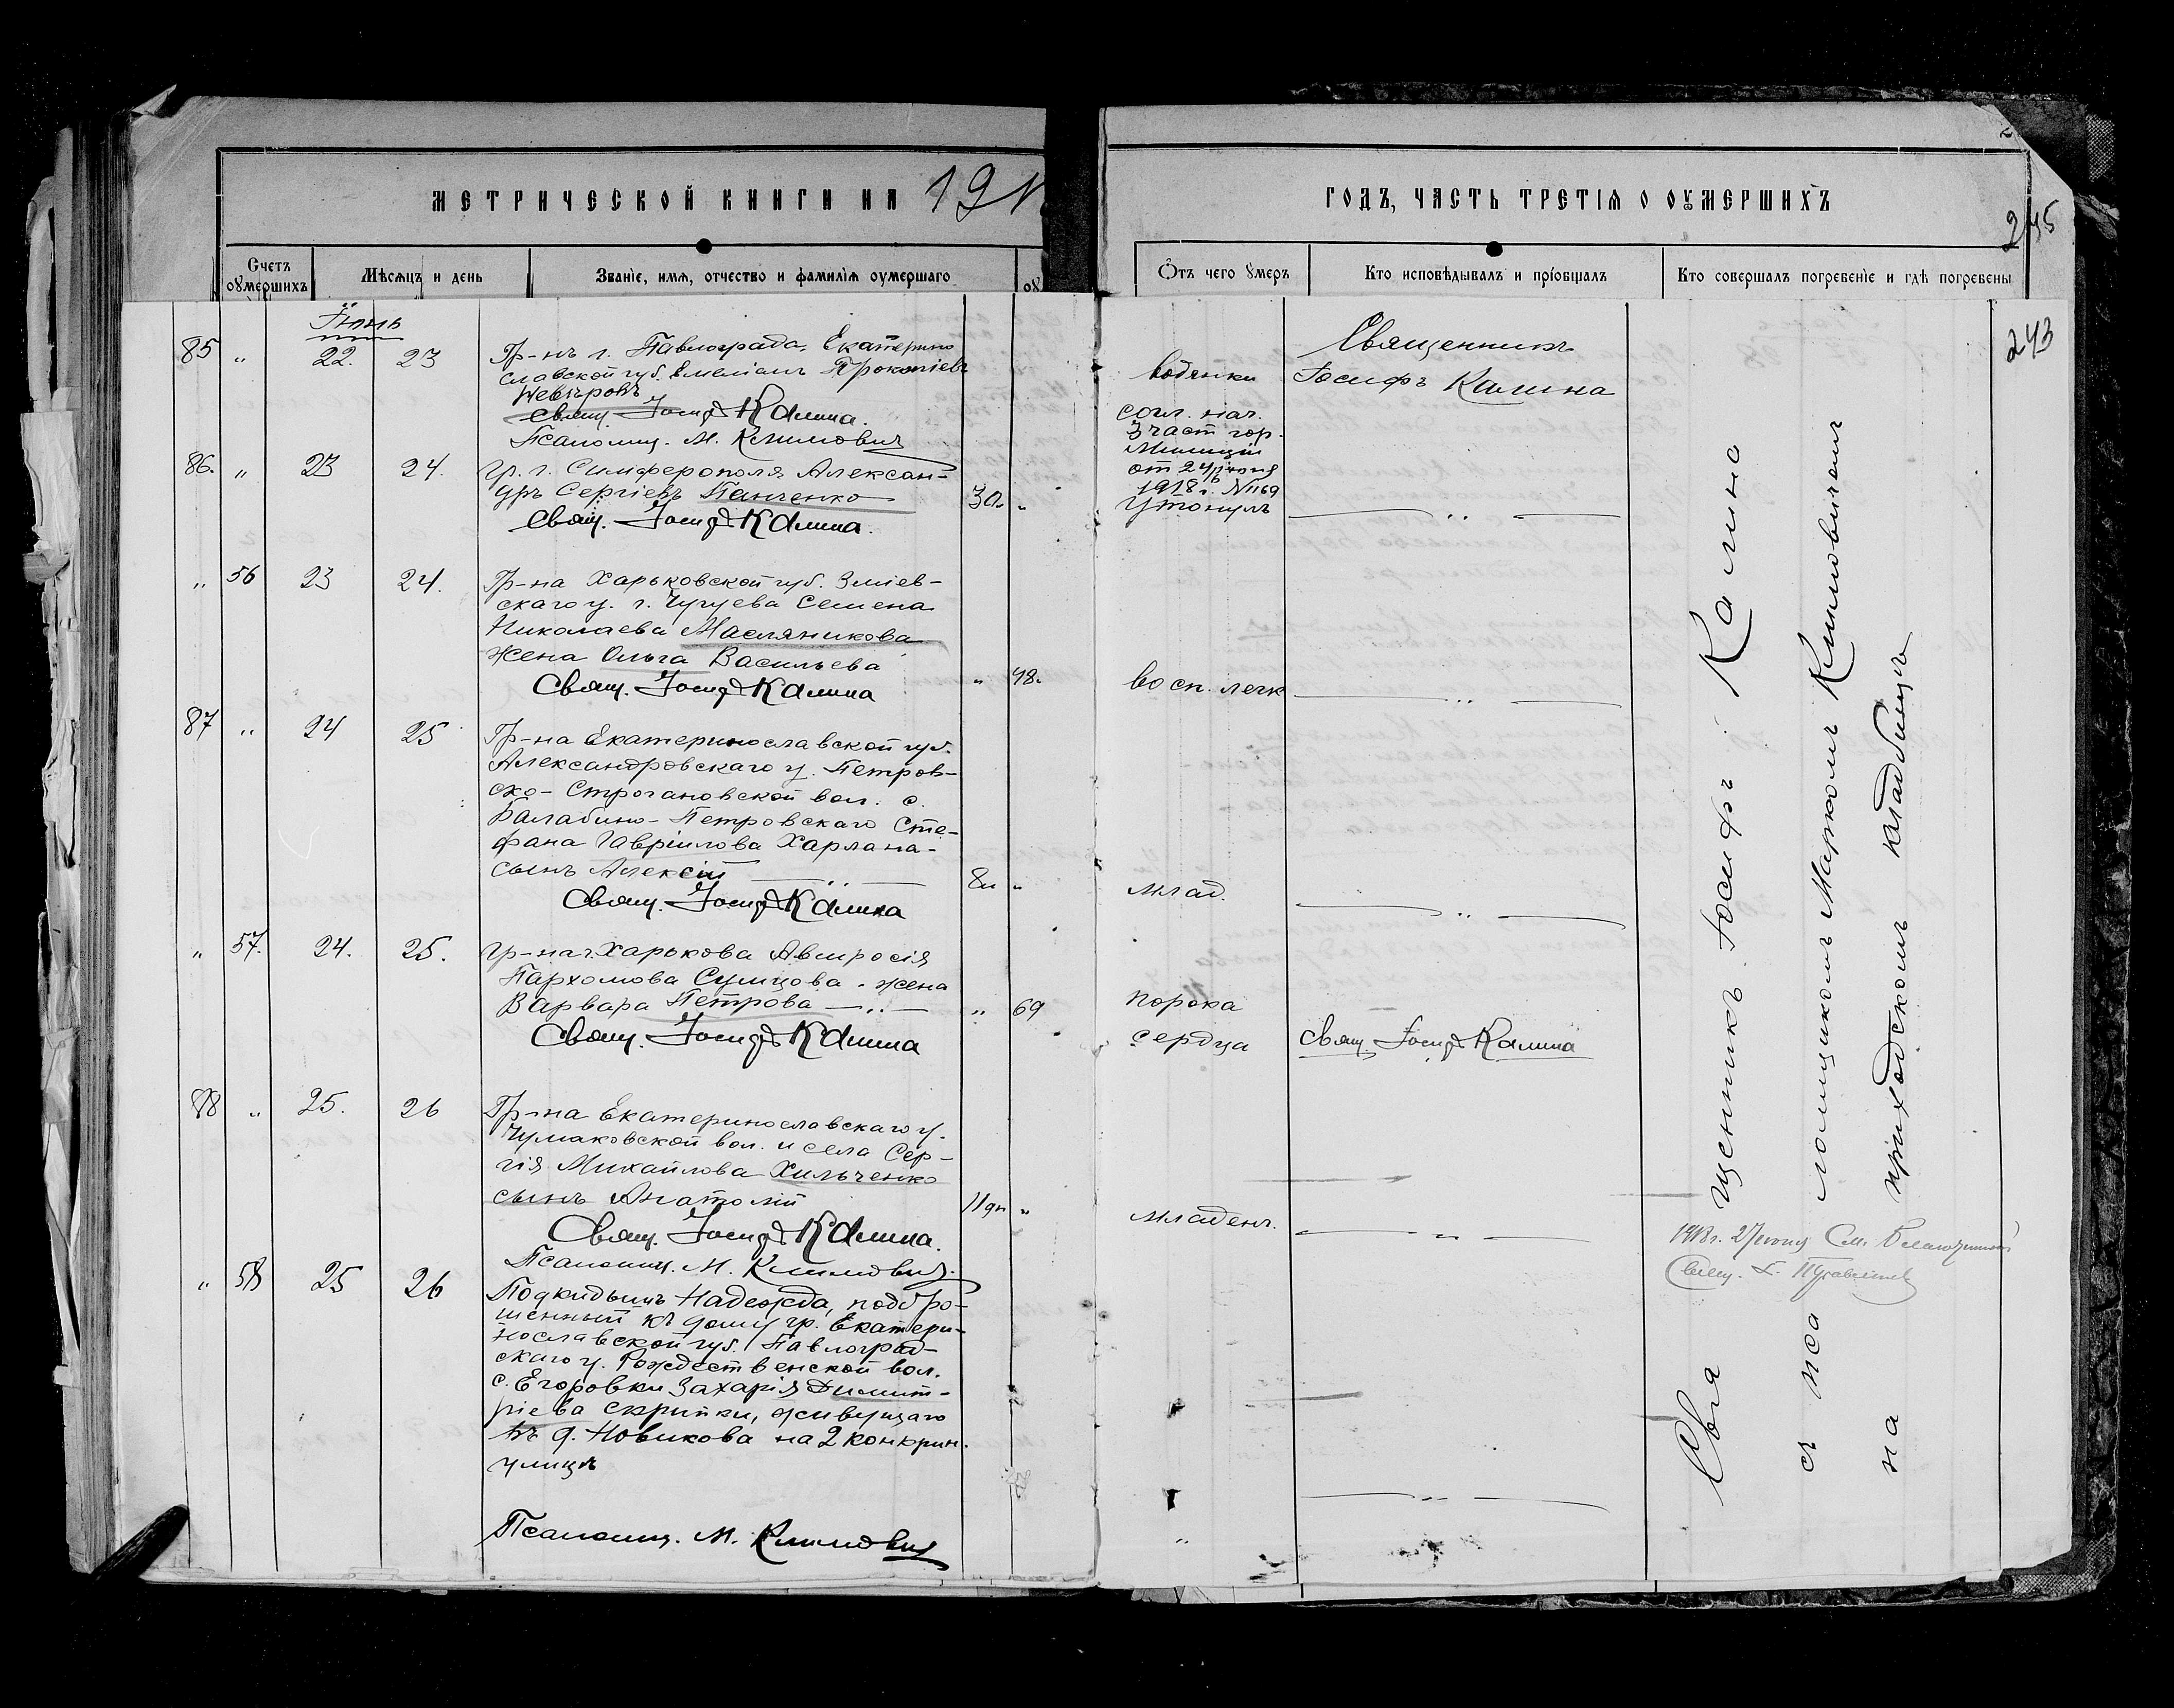 МЕТРИЧЕСКОЙ КНИГИ НА 191
ГОДЪ, ЧАСТЬ ТРЕТІЯ О ОУМЕРШИХЪ
245
Счетъ оумершихъ
Мѣсяцъ и день
Званіе, имя, отчество и фамилія оумершаго
Отъ чего умеръ
Кто исповѣдывалъ и пріобщалъ
Кто совершалъ погребеніе и гдѣ погребены
243
Іюнь
85 " 22. 23
Гр-нъ г. Павлограда, Екатерино
славской губ. Емеліанъ Прокопіевъ
Невѣровъ
Свящ. Іосифъ Калина.
Псаломщ. М. Климовичъ
водянки
Священникъ
Іосифъ Калина
86. " 23 24.
Гр. г. Симферополя Алексан-
дръ Сергіевъ Панченко
30. "
Свящ. Іосифъ Калина.
согл. нач.
3 част гор.
Милиціи
от 24 іюня
1918 г. №1169
Утонулъ
" 56 23 24.
Гр-на Харьковской губ. Зміев-
скаго у. г. Чугуева Семена
Николаева Масляникова
жена Ольга Васильева
" 48.
Свящ. Іосифъ Калина
восп. легк
87 " 24 25
Гр-на Екатеринославской губ.
Александровскаго у. Петров-
ско-Строгановской вол. с.
Балабино-Петровскаго Сте-
фана Гавріилова Харлана-
сынъ Алексій
8 "
Свящ. Іосифъ Калина
млад.
" 57. 24. 25.
Гр-на г. Харькова Амвросія
Пархомова Сумцова. жена
Варвара Петрова
" 69
Свящ. Іосифъ Калина
порока
сердца
Свящ. Іосифъ Калина
88 " 25. 26
Гр-на Екатеринославскаго у.
Чумаковской вол. и села Сер-
гія Михайлова Хильченко
сынъ Анатолій
11 дн "
Свящ. Іосифъ Калина.
Псаломщ. М. Климовичъ.
младенч.
" 58 25 26
Подкидышъ Надежда, подбро-
шенный къ дому гр. Екатери-
нославской губ. Павлоград-
скаго у. Рождественской вол.
с. Егоровки Захарія Димит-
ріева Скрипки, живущаго
въ д. Новикова на 2 конкрин.
улицѣ
Псаломщ. М. Климовичъ
Священникъ Іосифъ Калина
съ псаломщикомъ Маркомъ Климовичемъ
на приходскомъ кладбищѣ
1918 г. 27 іюня См. Благочинный
Свящ.